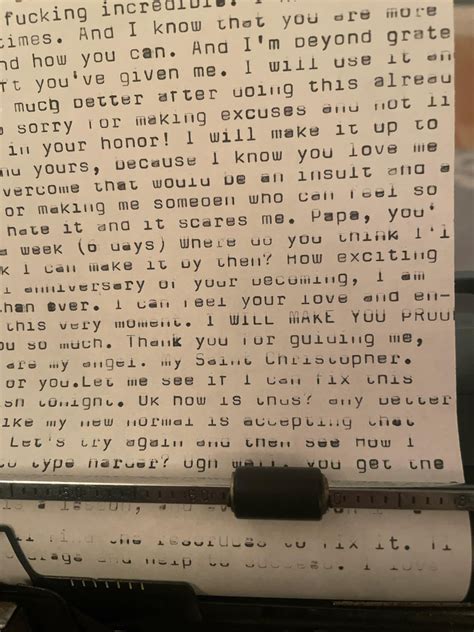 fucking incredible.
times. And I know that you are more
nd how you can. And I'm beyond grate
ft you've given me. I will use it an
much better after doing this alreau
sorry for making excuses and not li
in your honor! I will make it up to
nd yours, because I know you love me
vercome that would be an insult and a
or making me someoen who can feel so
hate it and it scares me. Papa, you'
a week (6 days) where do you think I'l
k I can make it by then? How exciting
l anniversary of your becoming, I am
han ever. I can feel your love and en-
this very moment. I WILL MAKE YOU PROU
ou so much. Thank you for guiding me,
are my angel. my Saint Christopher.
or you.Let me see if I can fix this
sh tonight. Ok how is thus? any better
like my new normal is accepting that
Let's try again and then see how I
to type harder? Ugh well, you get the
is a lesson, and
ll find the resources to fix it. Ti
and help to succeed. I love